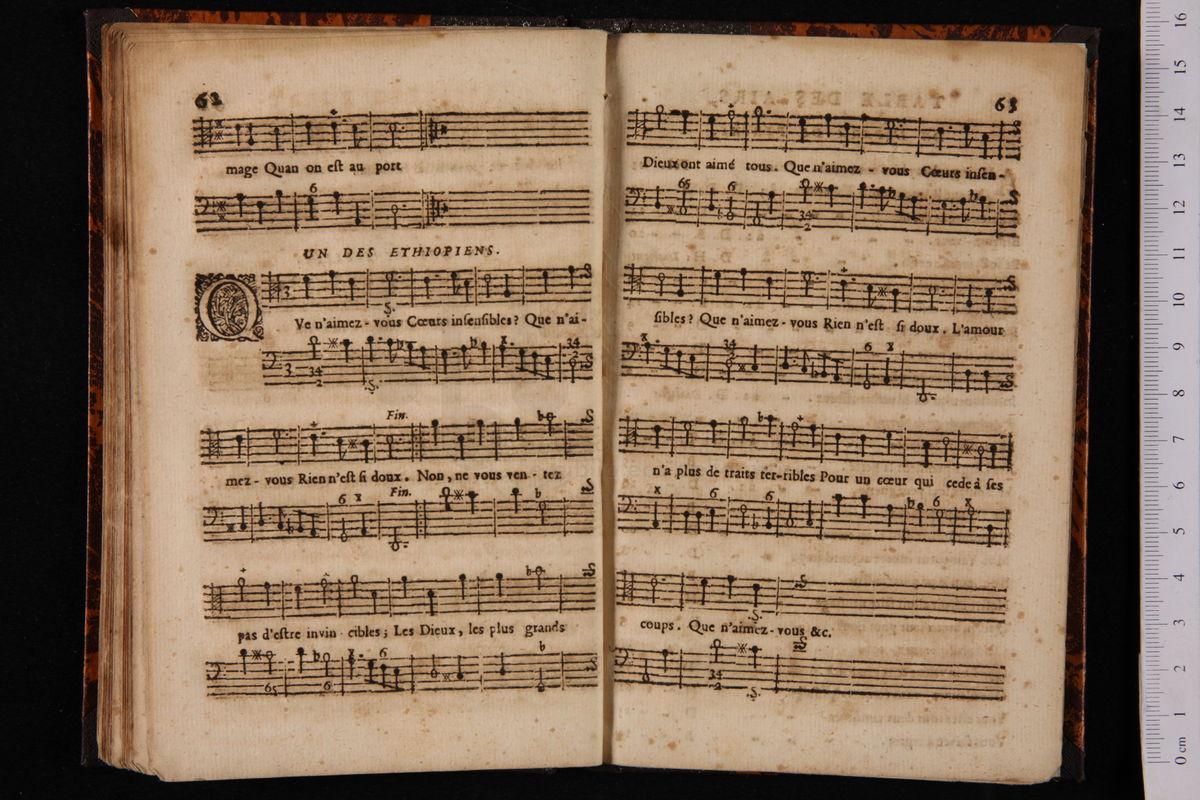 62
mage Quan on est au port
6
UN DES ETHIOPIENS.
QVe n'aimez - vous Cœurs insensibles? Que n'ai-
Fin.
mez - vous Rien n'est si doux. Non, ne vous ven - tez
Fin.
pas d'estre invin - cibles; Les Dieux, les plus grands
63
Dieux ont aimé tous. Que n'aimez - vous Cœurs insen-
sibles? Que n'aimez - vous Rien n'est si doux. L'amour
n'a plus de traits ter-ribles Pour un cœur qui cede à ses
coups. Que n'aimez - vous &c.
0 cm 1 2 3 4 5 6 7 8 9 10 11 12 13 14 15 16